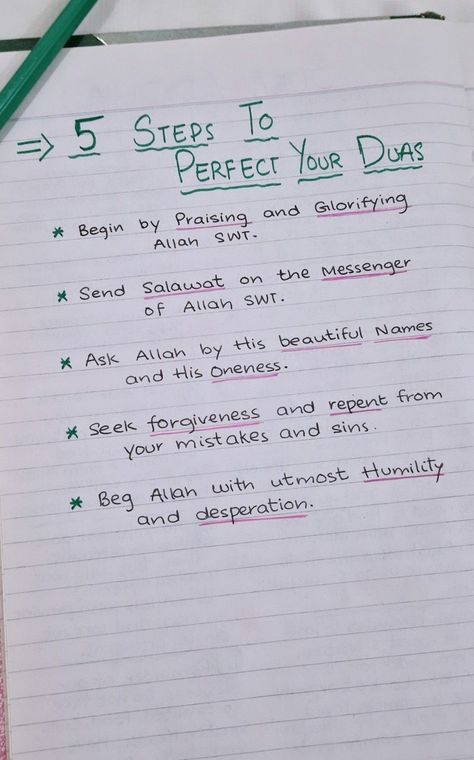 ⇒ 5 STEPS TO
PERFECT YOUR DUAS
* Begin by Praising and Glorifying
Allah SWT.
* Send Salawat on the Messenger
of Allah SWT.
* Ask Allah by His beautiful Names
and His Oneness.
* Seek forgiveness and repent from
your mistakes and sins.
* Beg Allah with utmost Humility
and desperation.